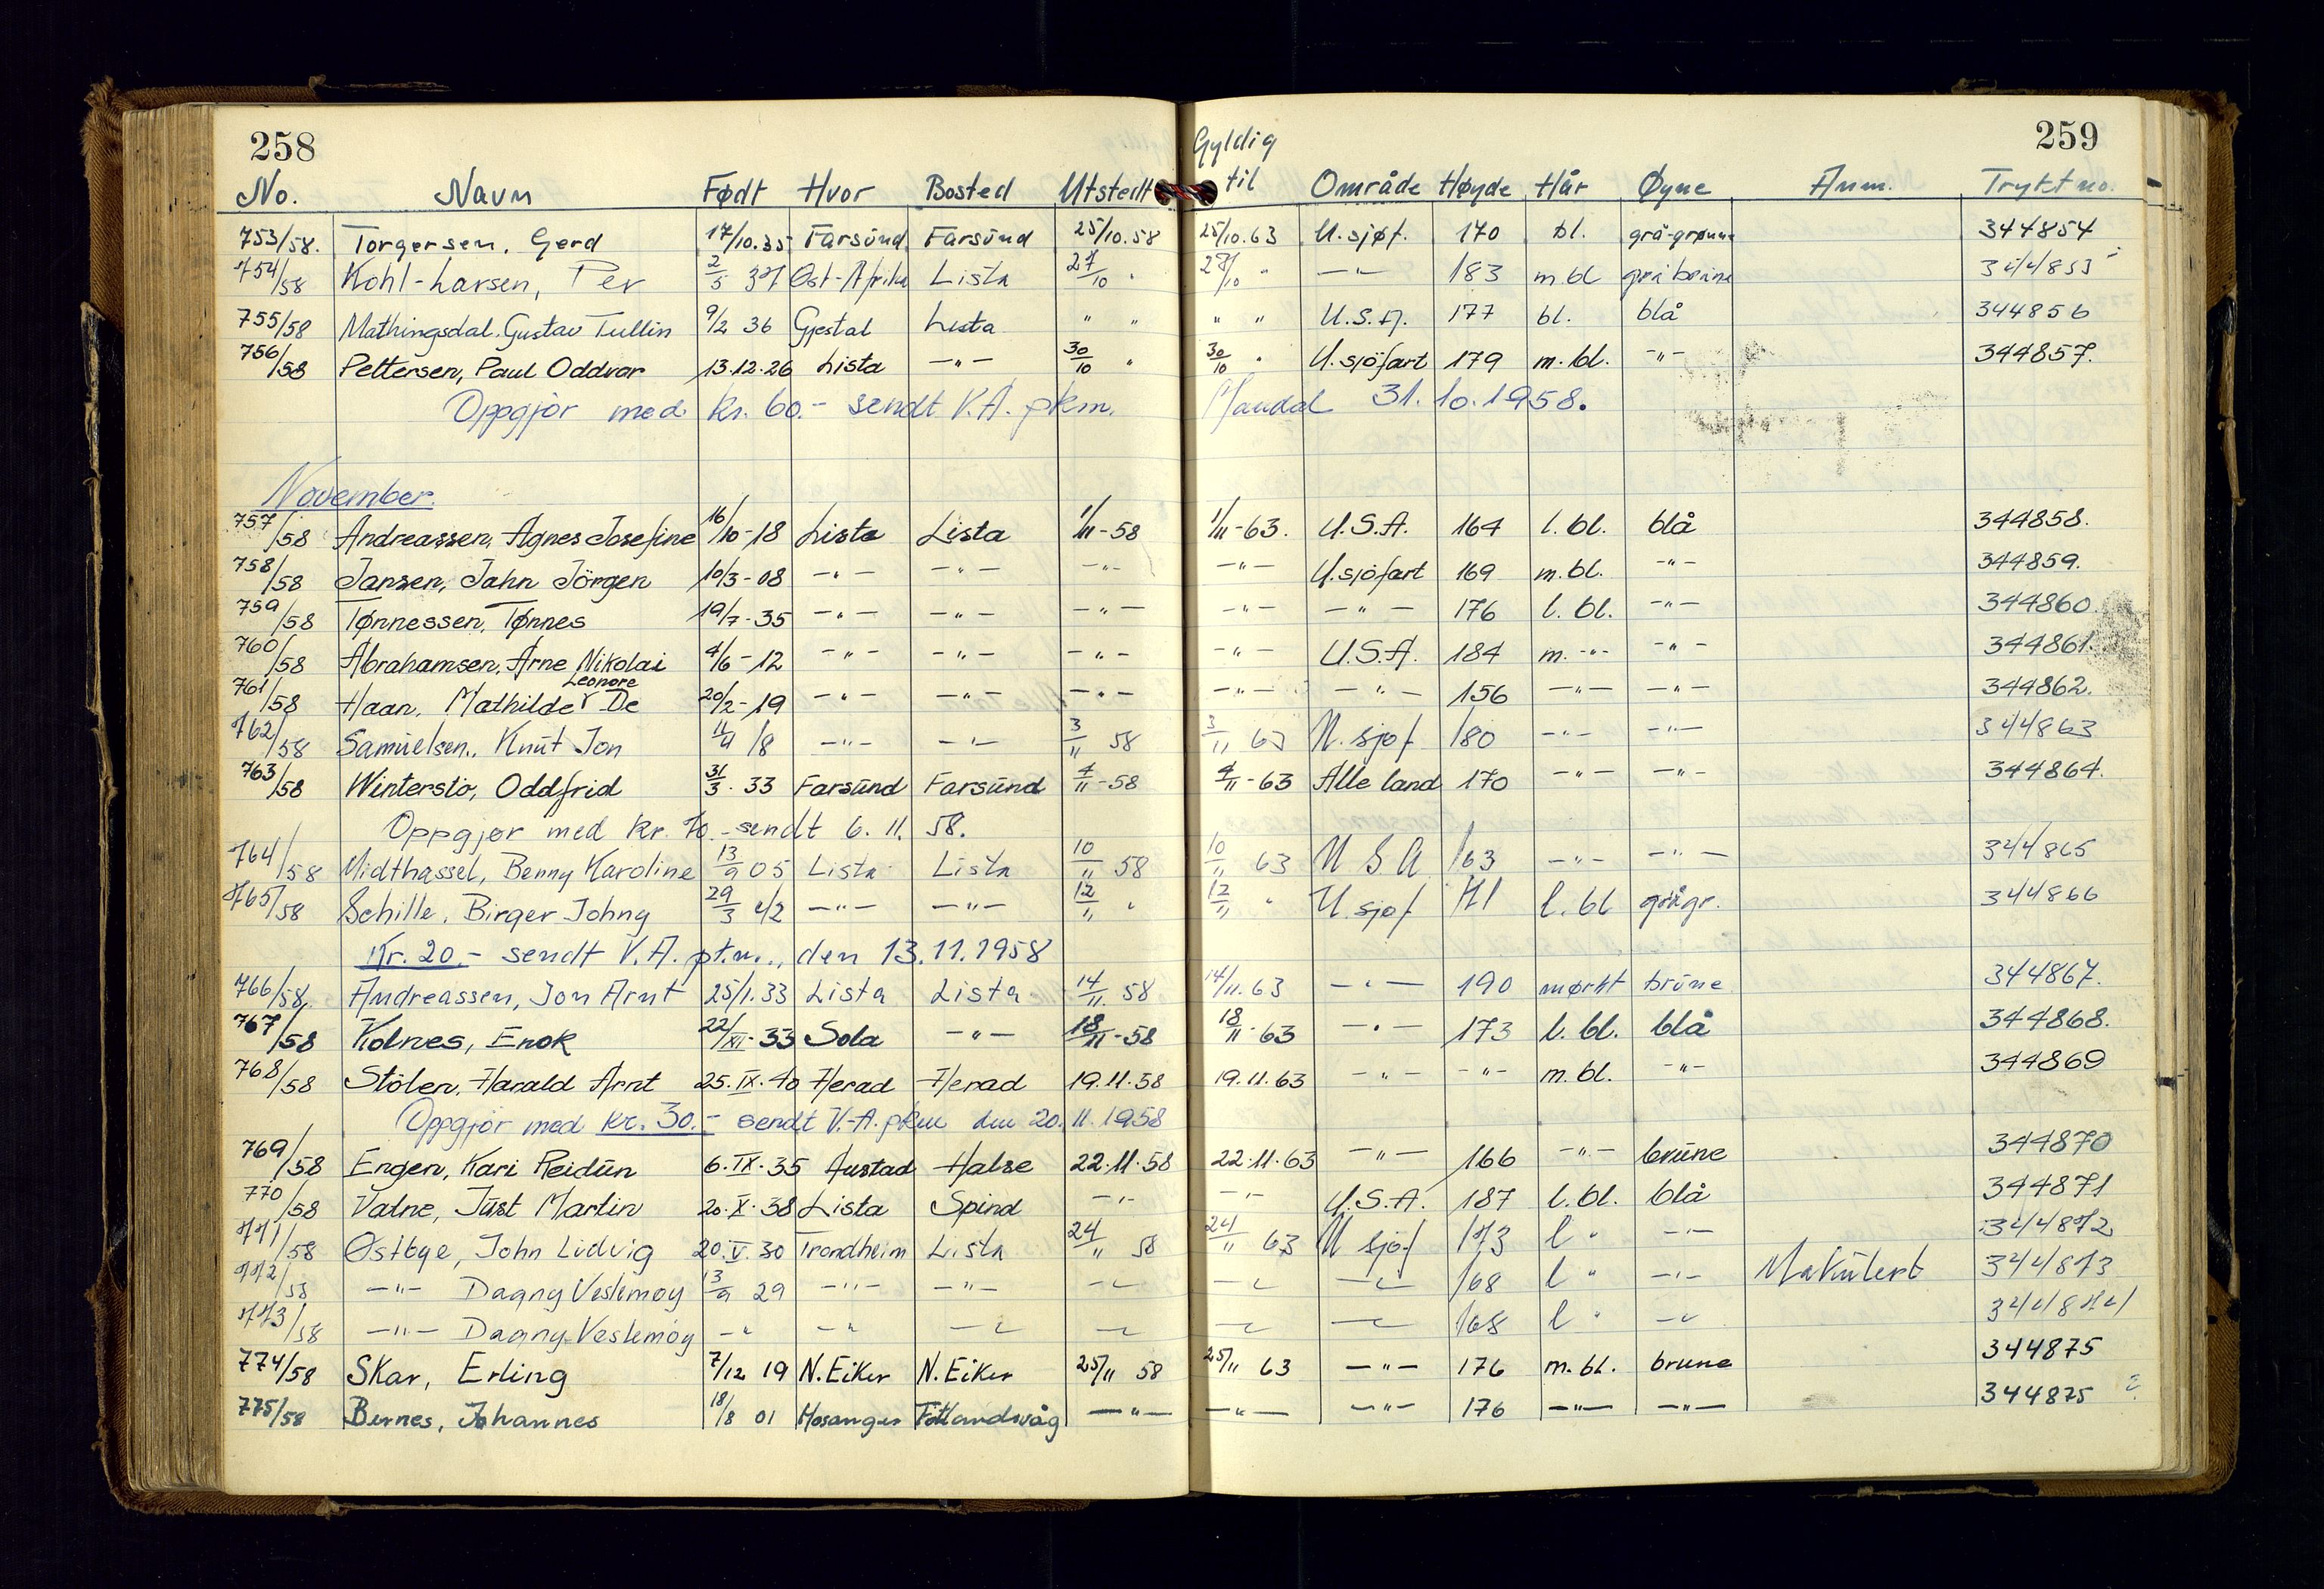 258
259
No. Navn Født Hvor Bosted Utstedt Gyldig til Område Høyde Hår Øyne Anm. Trykt no.
753/58. Torgersen, Gerd 17/10.35 Farsund Farsund 25/10.58 25/10.63 U.sjøf. 170 bl. grå-grønne 344854
754/58 Kohl-Larsen, Per 2/5 37 Øst-Afrika Lista 27/10 " 27/10 " —"— 183 m.bl
755/58 Mathingsdal. Gustav Tullin 9/2 36 Gjestal Lista " " " " U.S.A. 177 bl. blå 344856
756/58 Pettersen, Paul Oddvar 13.12.26 Lista —"— 30/10 " 30/10 " U.sjöfart 179 m.bl. —"— 344857.
Oppgjör med kr. 60.- sendt V.A. pkm. Mandal 31.10.1958.
November.
757/58 Andreassen, Agnes Josefine 16/10-18 Lista Lista 1/11-58 1/11-63. U.S.A. 164 l.bl. blå 344858.
758/58 Jansen, Jahn Jörgen 10/3-08 —"— —"— —"— —"— U.sjöfart 169 m.bl. —"— 344859.
759/58 Tønnessen, Tønnes 19/7-35 —"— —"— —"— —"— —"— 176 l.bl. —"— 344860.
760/58 Abrahamsen, Arne Nikolai 4/6-12 —"— —"— —"— —"— U.S.A. 184 m.—"— —"— 344861.
761/58 Haan, Mathilde Leonore De 20/2-19 —"— —"— —"— —"— —"— 156 —"— —"— 344862.
762/58 Samuelsen, Knut Jon 18 —"— —"— 3/11 58 3/11 63 U. sjøf 180 —"— —"— 344863
763/58 Winterstö, Oddfrid 31/3.33 Farsund Farsund 4/11-58 4/11-63 Alle land 170 —"— —"— 344864.
Oppgjør med kr. 70.- sendt 6.11.58.
764/58 Midthassel, Benny Karoline 13/9 05 Lista Lista 10/11 58 10/11 63 U S A 163 —"— —"— 344865
765/58 Schille, Birger Johny 29/3 42 —"— —"— 12/11 " 12/11 " U.sjøf l.bl grågr. 344866
Kr. 20.- sendt V.A. pt.m., den 13.11.1958
766/58. Andreassen, Jon Arnt 25/1.33 Lista Lista 14/11.58 14/11.63 —"— 190 mørkt brune 344867.
767/58 Kolnes, Enok 22/XII-33 Sola —"— 18/11-58 18/11-63 —"— 173 l.bl. blå 344868.
768/58 Stölen, Harald Arnt 25.IX.40 Herad Herad 19.11.58 19.11.63 —"— —"— m.bl. —"— 344869
Oppgjør med kr. 30.- sendt V.-A. pkm den 20.11.1958
769/58 Engen, Kari Reidun 6.IX.35 Austad Halse 22.11.58 22.11.63 —"— 166 —"— brune 344870
770/58 Vatne, Just Martin 20.X.38 Lista Spind —"— —"— U.S.A. 187 l.bl. blå 344871
771/58 Østbye, John Ludvig 20.V.30 Trondheim Lista 24/11 58 24/11 63 U sjøf 173 l " —"— 344872
772/58 —"— Dagny Veslemøy 13/9 29 —"— —"— —"— —"— —"— 168 l " —"— Makulert 344873
773/58 —"— Dagny Veslemøy —"— —"— —"— —"— —"— —"— 168 l " —"— 344874
774/58 Skar, Erling 7/12 19 N.Eiker N.Eiker 25/11 58 25/11 63 —"— 176 m.bl. brune 344875
775/58 Bernes, Johannes 18/8 01 Hosanger Fotlandsvåg —"— —"— —"— 176 —"— —"— 344875 ?